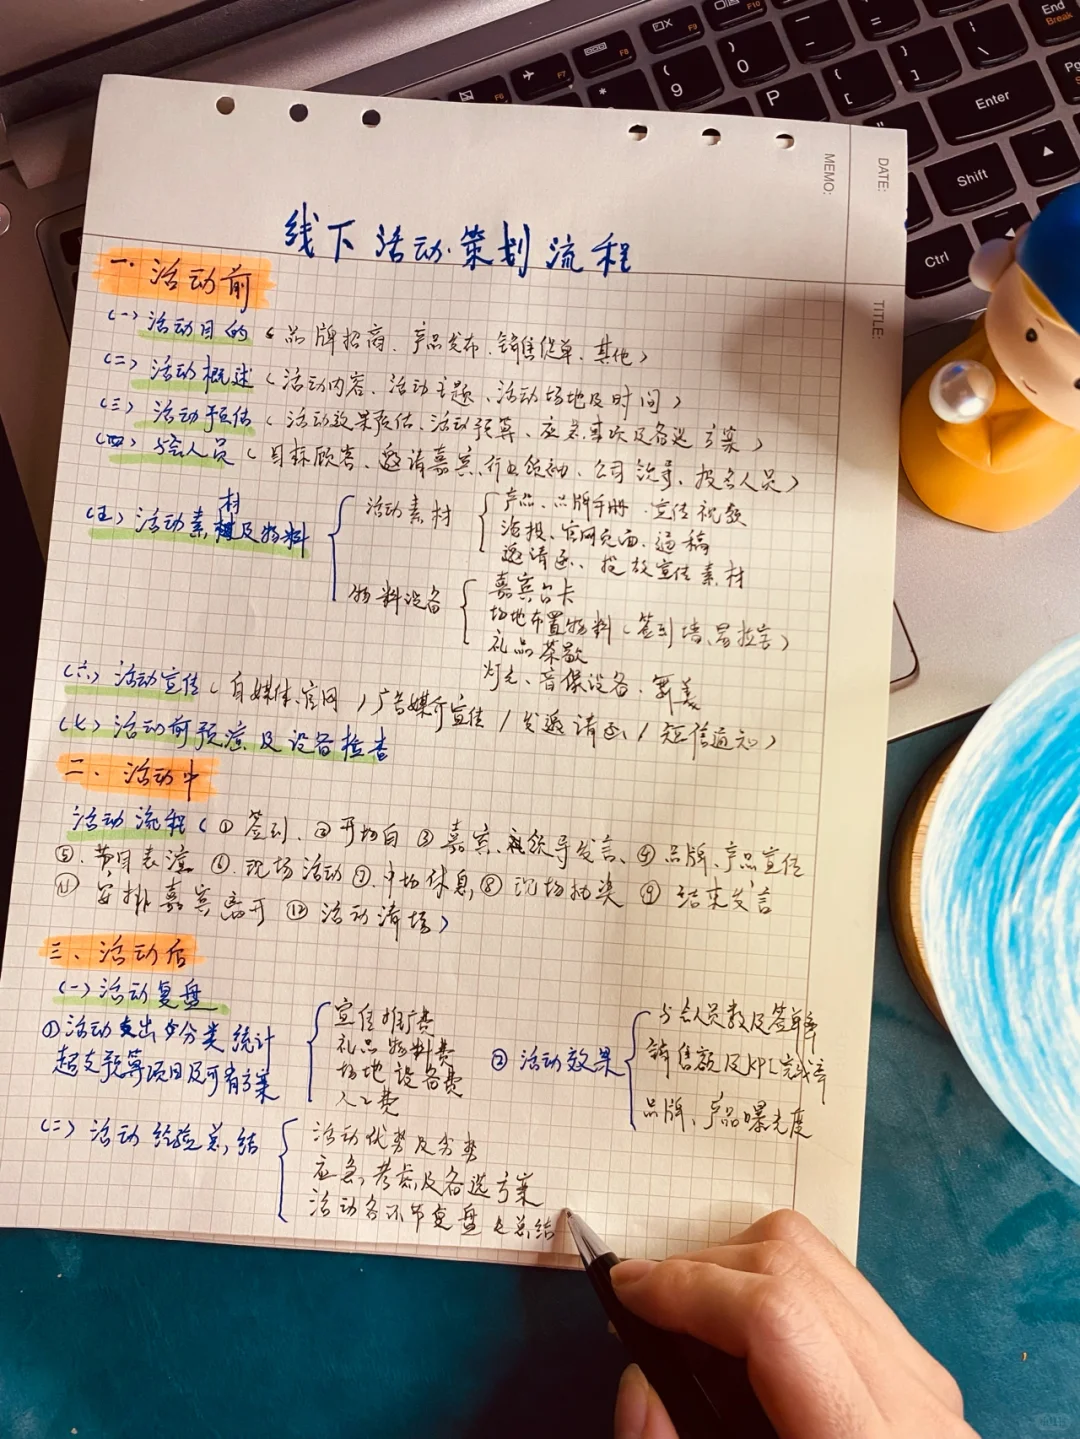 线下活动策划流程
一. 活动前
(一) 活动目的(品牌招商、产品发布、销售促单、其他)
(二) 活动概述(活动内容、活动主题、活动场地及时间)
(三) 活动预估(活动效果预估、活动预算、应急事项及备选方案)
(四) 与会人员(目标顾客、邀请嘉宾、行业领袖、公司领导、报名人员)
(五) 活动素材及物料
活动素材
产品、品牌手册、宣传视频
海报、官网页面、通稿
邀请函、投放宣传素材
物料设备
嘉宾台卡
场地布置物料(签到墙、易拉宝)
礼品 茶歇
灯光、音像设备、舞美
(六) 活动宣传(自媒体、官网 / 广告媒介宣传 / 发邀请函 / 短信通知)
(七) 活动前预演及设备检查
二、活动中
活动流程(① 签到、② 开场白 ③ 嘉宾、领导发言、④ 品牌、产品宣传
⑤、节目表演 ⑥、现场活动 ⑦、中场休息, ⑧ 现场抽奖 ⑨ 结束发言
⑪ 安排嘉宾离开 ⑫ 活动清场)
三、活动后
(一) 活动复盘
① 活动支出分类统计
超支预算项目及可有方案
宣传推广费
礼品物料费
场地设备费
人工费
② 活动效果
与会人员数及签单率
销售额及KPI完成率
品牌、产品曝光度
(二) 活动经验总结
活动优势及劣势
应急, 考虑及备选方案
活动各环节复盘及总结
DATE:
MEMO:
TITLE:
End
Break
Enter
Shift
Ctrl
P
9
0
F6
F7
F8
F9
F10